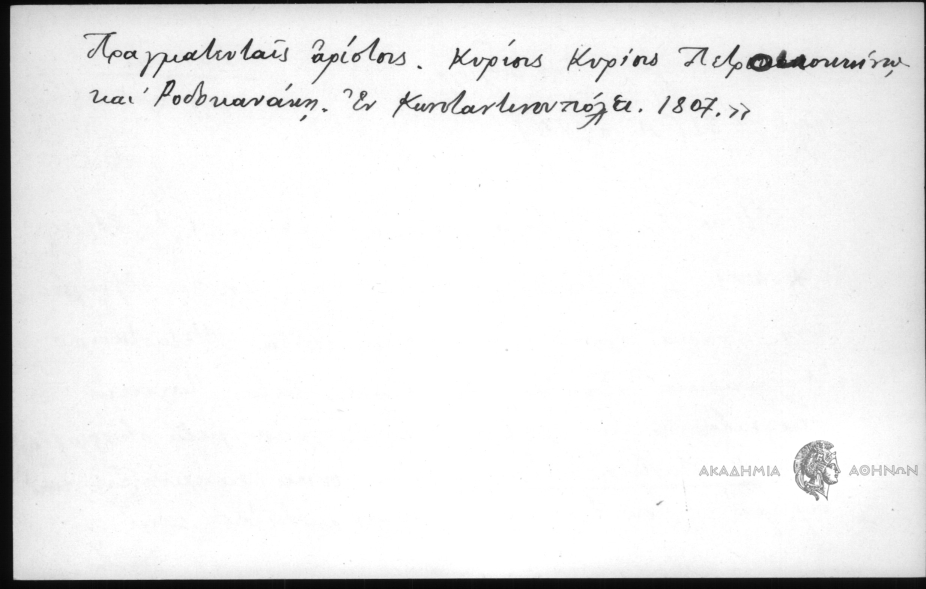 Πραγματευταῖς ἀρίστοις. Κυρίοις Κυρίοις
καὶ Ῥοδοκανάκῃ. Ἐν Κωνσταντινουπόλει. 1807.»
ΑΚΑΔΗΜΙΑ ΑΘΗΝΩΝ